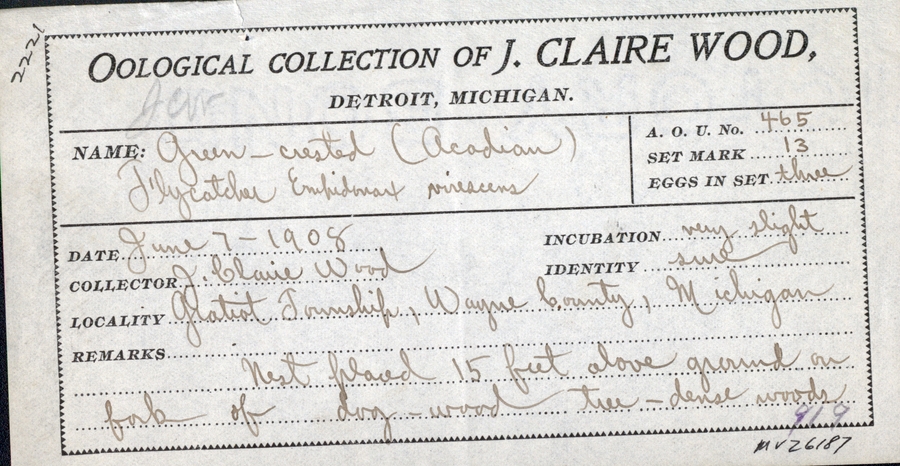 2221
OOLOGICAL COLLECTION OF J. CLAIRE WOOD,
DETROIT, MICHIGAN.
JCW
NAME: Green-crested (Acadian)
Flycatcher Empidonax virescens
A. O. U. No. 465
SET MARK 13
EGGS IN SET three
DATE June 7-1908
INCUBATION very slight
COLLECTOR J. Claire Wood
IDENTITY sure
LOCALITY Township, Wayne County, Michigan
REMARKS
Nest placed 15 feet above ground on
fork of dog-wood tree-dense woods
919
MV26187